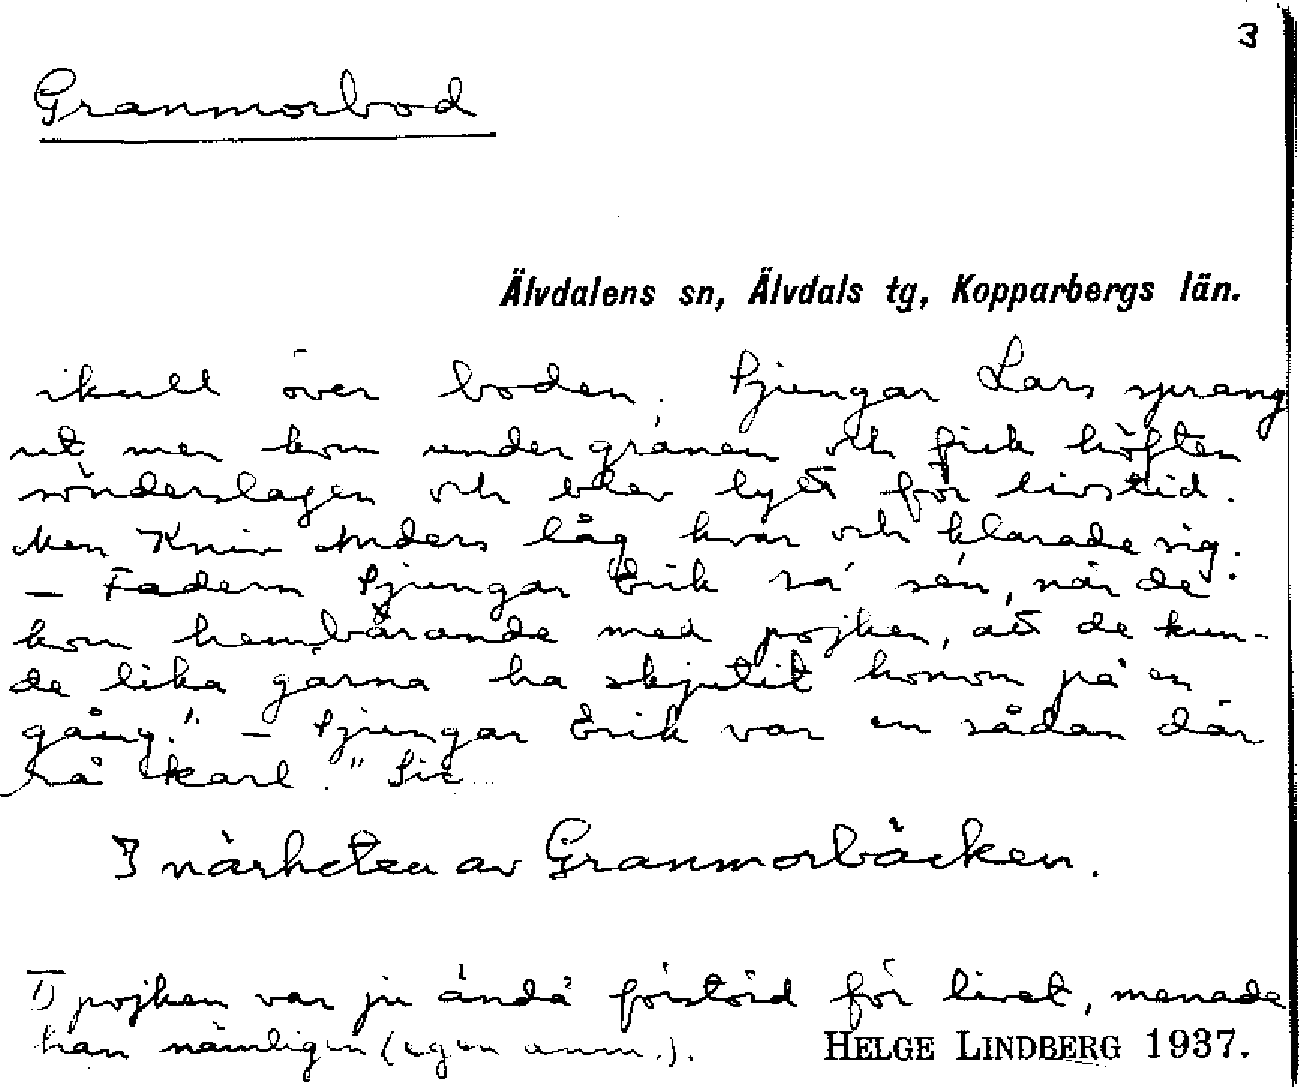 3
Granmorbod
Älvdalens sn, Älvdals tg, Kopparbergs län.
ikull över boden. Pjungar Lars sprang
ut men kom under granen och fick höften
sönderslagen och blev lytt för livstid.
Men Kniv Anders låg kvar och klarade sig.
— Fadern Pjungar Erik sa' sen, när de
kom hembärande med pojken, att de kun-
de lika gärna ha skjutit honom på en
gång.¹⁾ — Pjungar Erik var en sådan där
rå karl." Sic
I närheten av Granmorbäcken.
1) pojken var ju ändå förstörd för livet, menade
han nämligen (egen anm.). HELGE LINDBERG 1937.